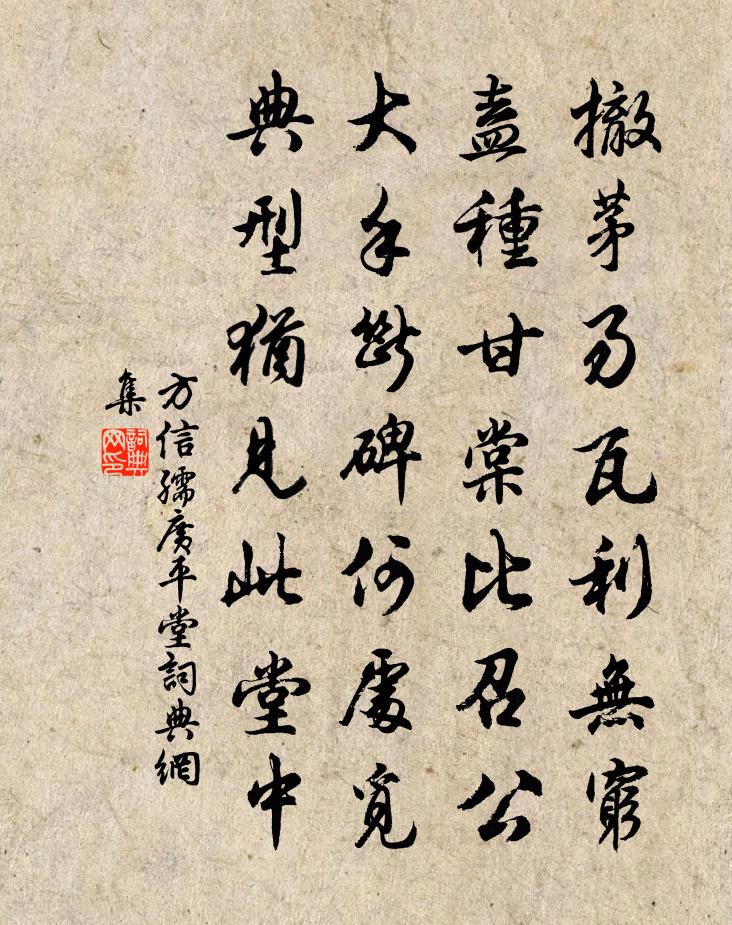 撤茅易瓦利無窮
盍種甘棠比召公
大手斷碑何處覓
典型猶見此堂中
方信孺廣平堂詞典網
集
詞典
网印